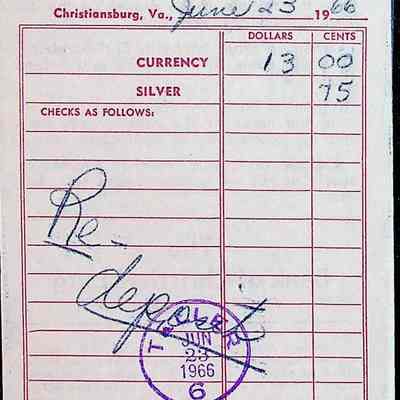 Christiansburg, Va., June 23 1966
DOLLARS CENTS
CURRENCY 13 00
SILVER 75
CHECKS AS FOLLOWS:
Re-
deposit
TELLER
JUN
23
1966
6